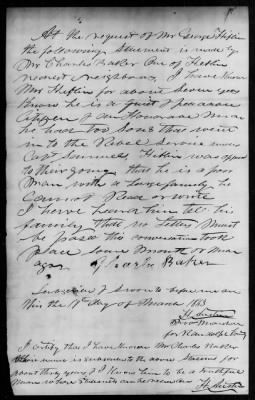 At the request of Mr George Heflin
the following statement is made by
Mr Charles Baker One of Heflins
nearest neighbours, I have known
Mr Heflin for about Seven years
Know he is a quiet & peacable
Citizen & an Honorable Man
he has two Sons that went
in to the Rebel Service under
Capt Heflin was opposed
to their going that he is a poor
Man with a large family he
Cannot Read or write
I have heard him tell his
family that no letters must
be passed this conversation took
place some Month or more
ago. Charles Baker
Subscribed & Sworn to before me on
this the day of March 1863
Pro Marshal
for
I certify that I have known Mr Charles Baker
whose name is to the above Statement for
about thirty years & I Know him to be a truthful
Man whose Statements can be relied on